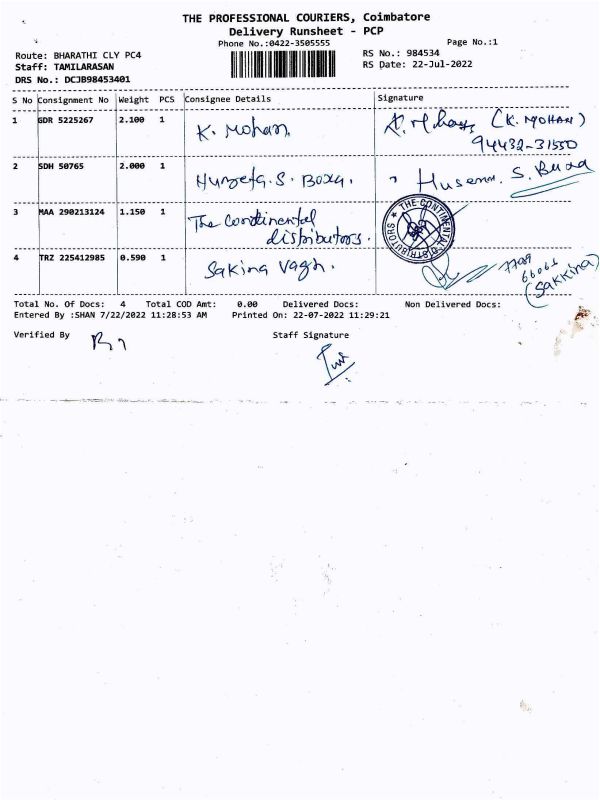 THE PROFESSIONAL COURIERS, Coimbatore
Delivery Runsheet - PCP
Phone No.:0422-3505555 Page No.:1
Route: BHARATHI CLY PC4 RS No.: 984534
Staff: TAMILARASAN RS Date: 22-Jul-2022
DRS No.: DCJB98453401
S No Consignment No Weight PCS Consignee Details Signature
1 SDR 5225267 2.100 1 K. Mohan (K. MOHAN)
94432-31550
2 SDH 50765 2.000 1 S. Boxa. S.
3 MAA 290213124 1.150 1 The Continental
distributors. THE CONTINENTAL DISTRIBUTORS
4 TRZ 225412985 0.590 1 Sakina Vagh. 7709
66061
(Sakkina)
Total No. Of Docs: 4 Total COD Amt: 0.00 Delivered Docs: Non Delivered Docs:
Entered By :SHAN 7/22/2022 11:28:53 AM Printed On: 22-07-2022 11:29:21
Verified By Staff Signature